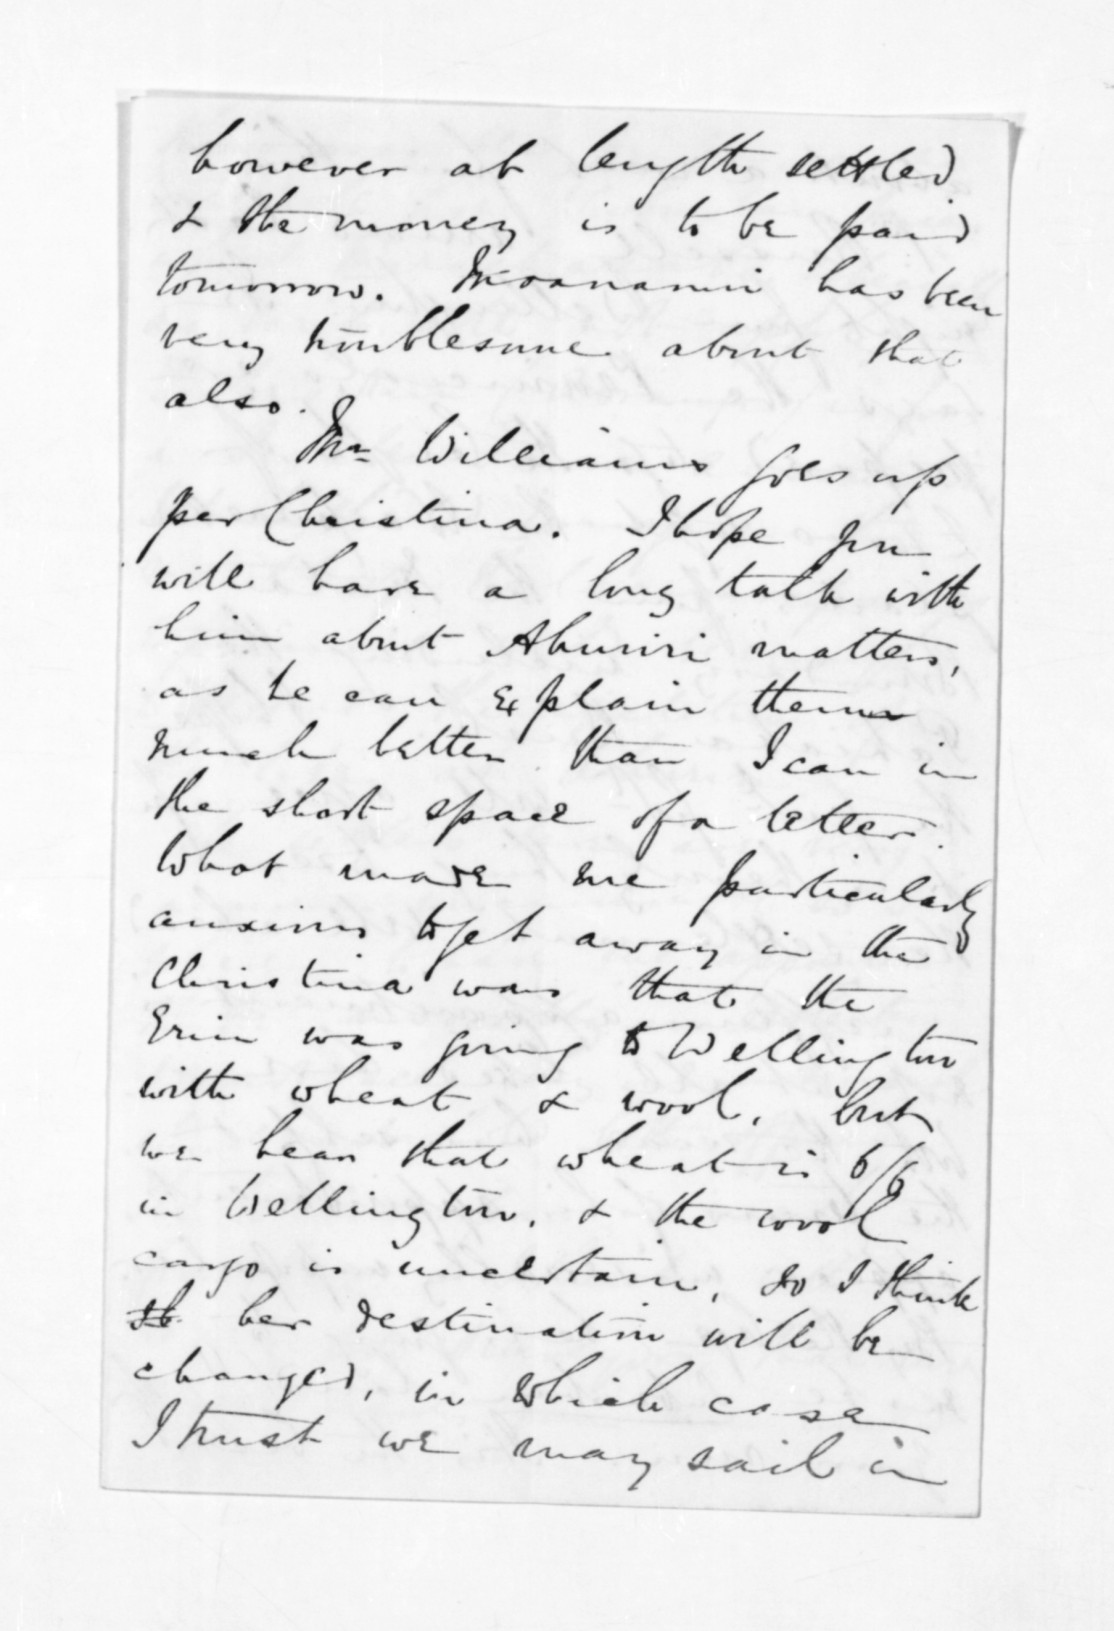 however at length settled
& the money is to be paid
tomorrow. Moananui has been
very troublesome about that
also.
Mr Williams goes up
per Christina. I hope you
will have a long talk with
him about Ahuriri matters,
as he can explain them
much better than I can in
the short space of a letter.
What made me particularly
anxious to get away in the
Christina was that the
Erin was going to Wellington
with wheat & wool, but
we hear that wheat is 6/6
in Wellington, & the wool
cargo is uncertain, so I think
her destination will be
changed, in which case
I trust we may sail in